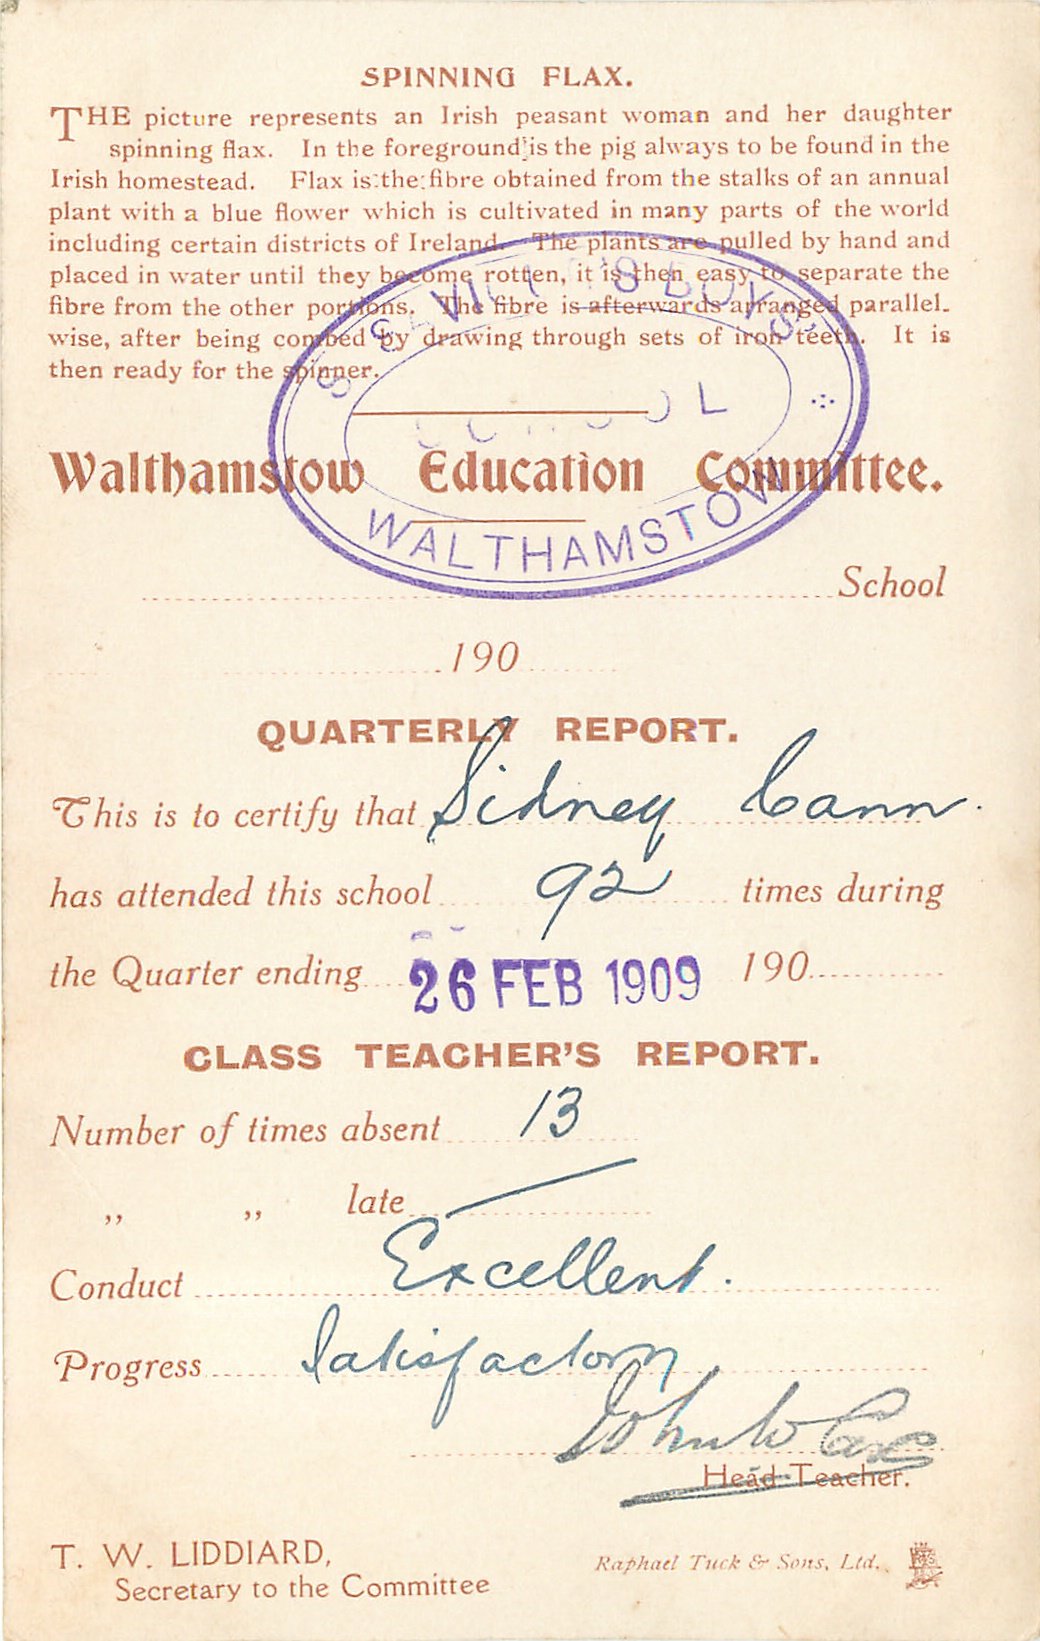 SPINNING FLAX.
THE picture represents an Irish peasant woman and her daughter
spinning flax. In the foreground is the pig always to be found in the
Irish homestead. Flax is the fibre obtained from the stalks of an annual
plant with a blue flower which is cultivated in many parts of the world
including certain districts of Ireland. The plants are pulled by hand and
placed in water until they become rotten, it is then easy to separate the
fibre from the other portions. The fibre is afterwards arranged parallel-
wise, after being combed by drawing through sets of iron teeth. It is
then ready for the spinner.
Walthamstow Education Committee.
WALTHAMSTOW
School
190
QUARTERLY REPORT.
This is to certify that Sidney Cann.
has attended this school 92 times during
the Quarter ending 26 FEB 1909 190
CLASS TEACHER'S REPORT.
Number of times absent 13
„ „ late
Conduct Excellent.
Progress Satisfactory
John W
Head Teacher.
T. W. LIDDIARD,
Secretary to the Committee
Raphael Tuck & Sons, Ltd.